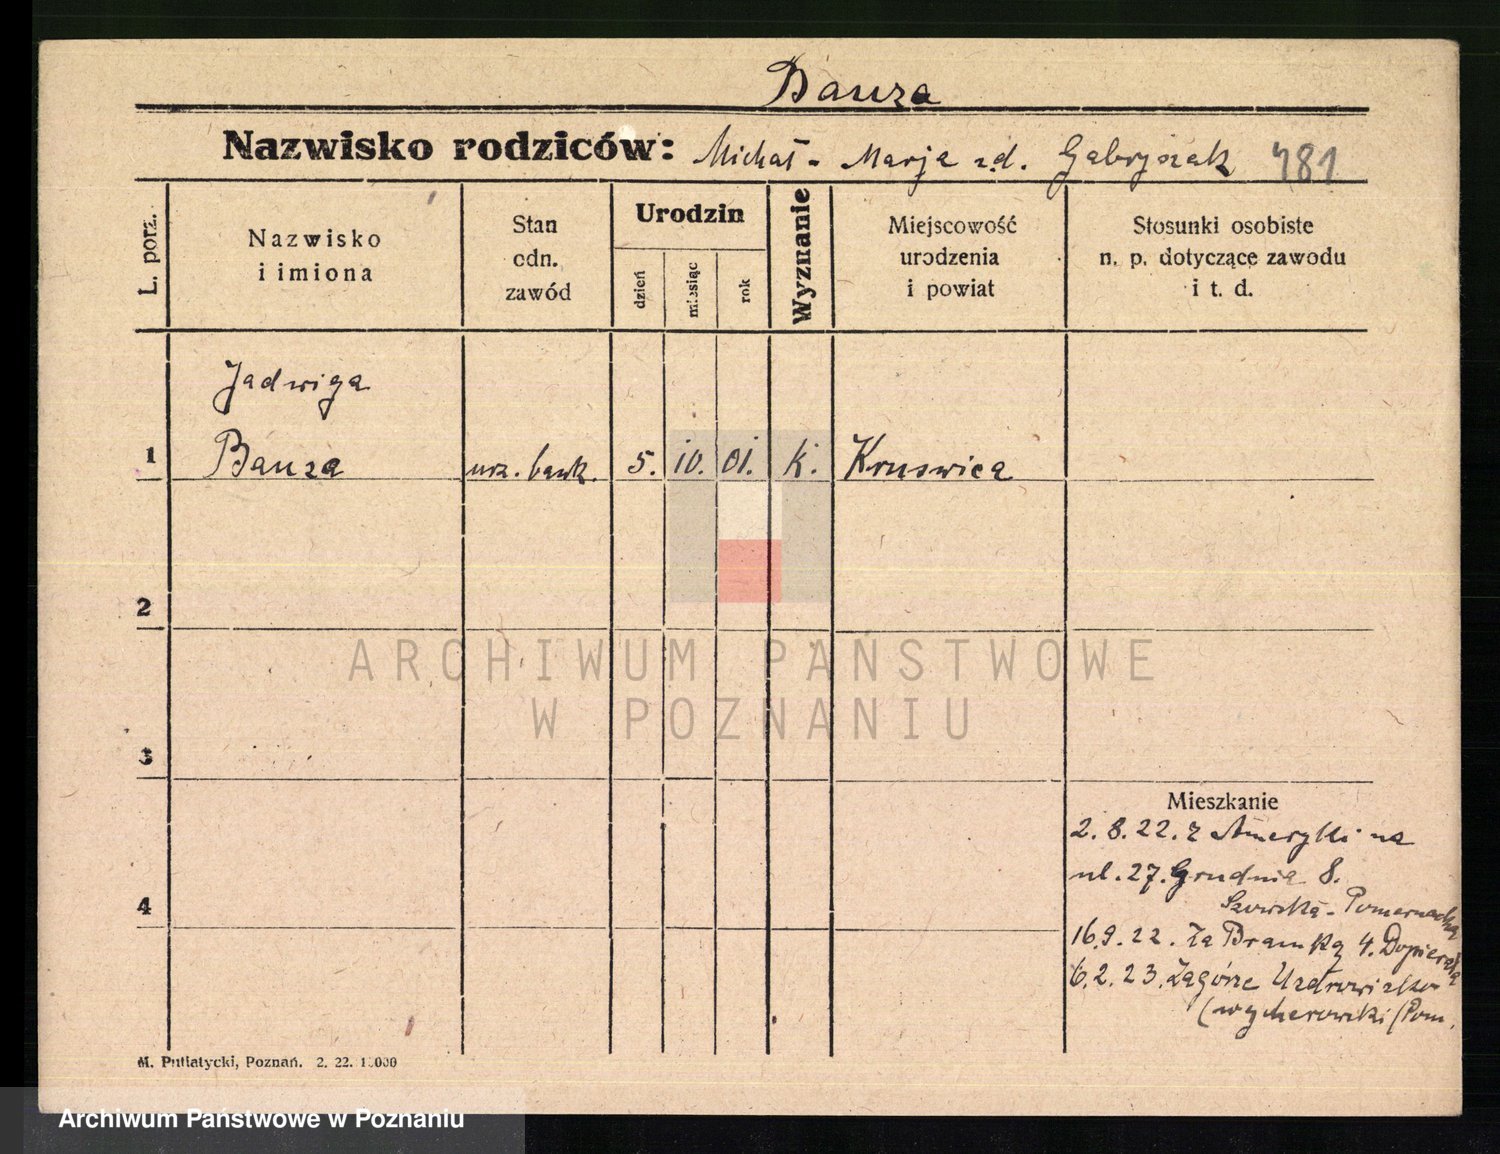 Bauza
Nazwisko rodziców: Michał - Marja zd. Gabryszak 481
L. porz.
Nazwisko
i imiona
Stan
odn.
zawód
Urodzin
dzień
miesiąc
rok
Wyznanie
Miejscowość
urodzenia
i powiat
Stosunki osobiste
n. p. dotyczące zawodu
i t. d.
Jadwiga
1 Bauza urz. bank. 5. 10. 01. k. Kruswica
2
ARCHIWUM PAŃSTWOWE
W POZNANIU
3
Mieszkanie
2.8.22. z Ameryki na
ul. 27. Grudnia 8.
4
16.9.22. Za Bramką 4.
6.2.23. Zagórze Uzdrowisko
(wejherowski (Pom.
M. Putiatycki, Poznań. 2. 22.
Archiwum Państwowe w Poznaniu